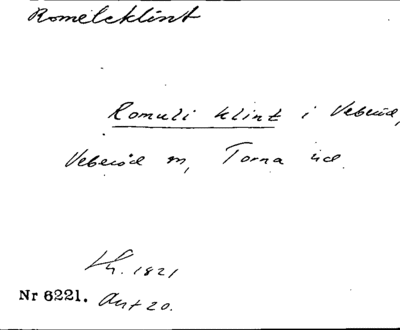 Romeleklint
Romuli klint i Veberöd,
Veberöd sn, Torna hd.
Lh. 1821
Nr 6221. Avt 20.